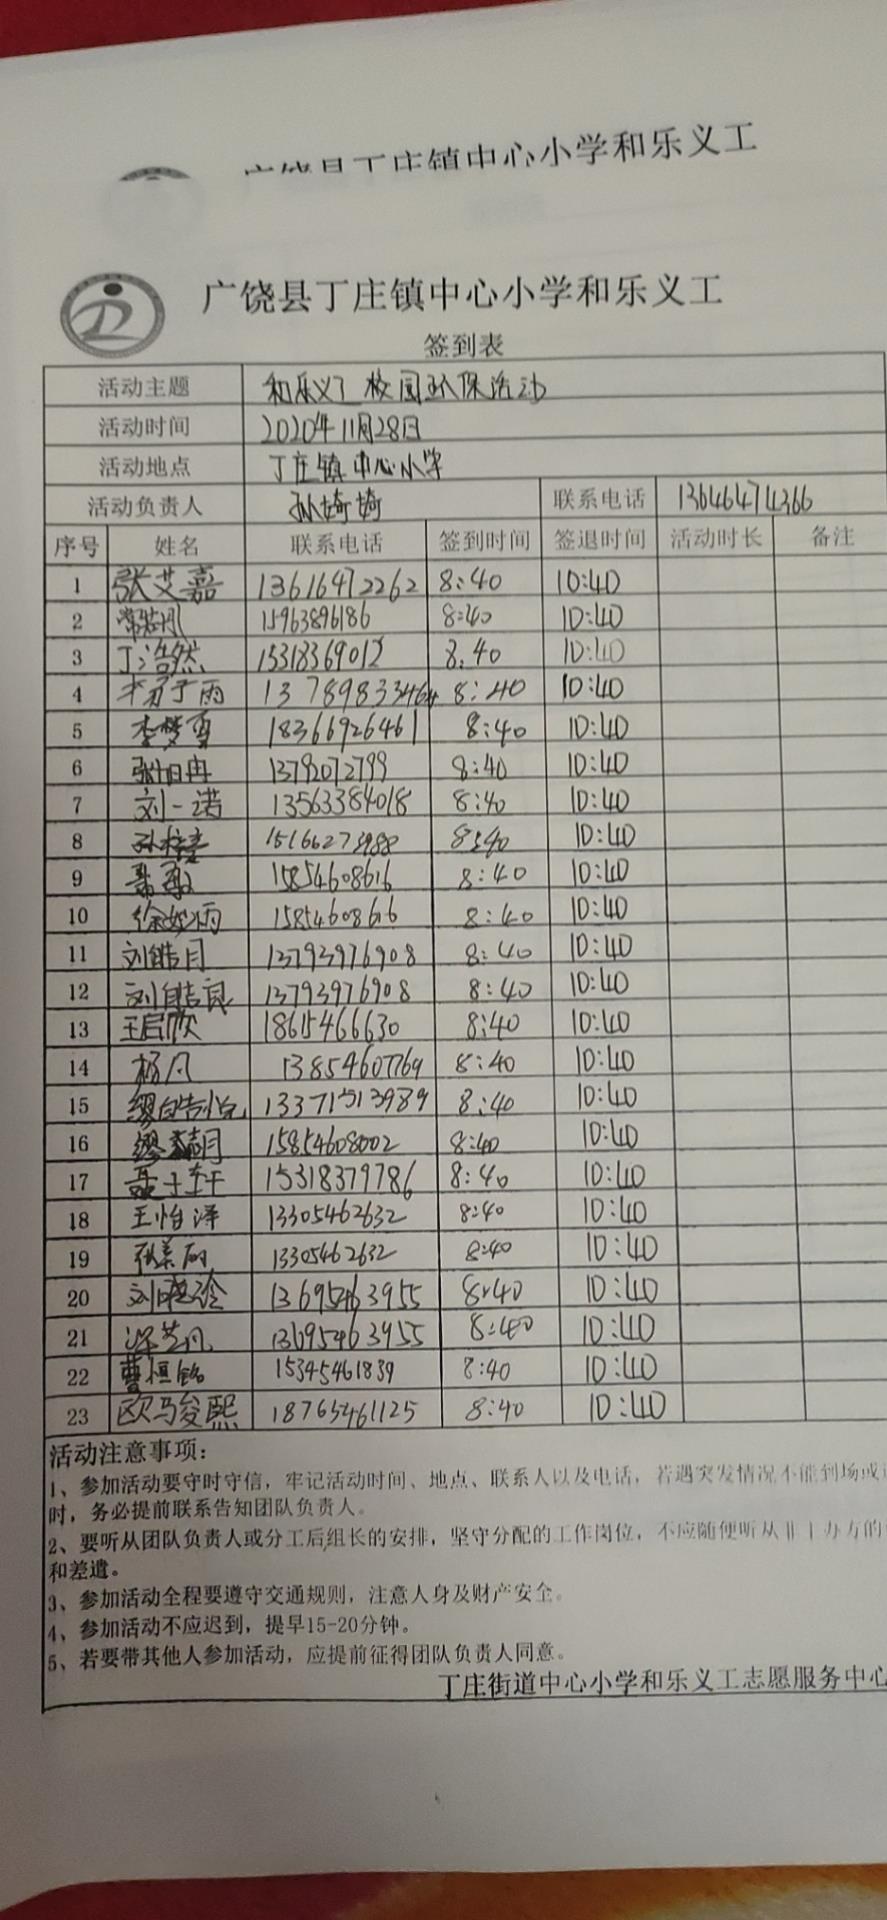 广饶县丁庄镇中心小学和乐义工
广饶县丁庄镇中心小学和乐义工
签到表
活动主题 和乐义工校园环保活动
活动时间 2020年11月28日
活动地点 丁庄镇中心小学
活动负责人 孙婍婍 联系电话 13646474366
序号 姓名 联系电话 签到时间 签退时间 活动时长 备注
1 张艾嘉 13616472262 8:40 10:40
2 15963896186 8:40 10:40
3 丁浩然 15318369012 8:40 10:40
4 13789833464 8:40 10:40
5 李梦 18366926461 8:40 10:40
6 13792072799 8:40 10:40
7 刘一诺 13563384018 8:40 10:40
8 15166273988 8:40 10:40
9 15854608616 8:40 10:40
10 15854608616 8:40 10:40
11 刘皓月 13793976908 8:40 10:40
12 刘皓良 13793976908 8:40 10:40
13 王启欣 18615466630 8:40 10:40
14 杨凡 13854607769 8:40 10:40
15 缪皓悦 13371513989 8:40 10:40
16 缪 15854608002 8:40 10:40
17 聂子轩 15318379786 8:40 10:40
18 王怡泽 13305462632 8:40 10:40
19 张美丽 13305462632 8:40 10:40
20 刘晓玲 13695463955 8:40 10:40
21 梁艺凡 13695463955 8:40 10:40
22 曹恒铭 15345461839 8:40 10:40
23 欧马俊熙 18765461125 8:40 10:40
活动注意事项：
1、参加活动要守时守信，牢记活动时间、地点、联系人以及电话，若遇突发情况不能到场或
时，务必提前联系告知团队负责人。
2、要听从团队负责人或分工后组长的安排，坚守分配的工作岗位，不应随便听从非主办方的
和差遣。
3、参加活动全程要遵守交通规则，注意人身及财产安全。
4、参加活动不应迟到，提早15-20分钟。
5、若要带其他人参加活动，应提前征得团队负责人同意。
丁庄街道中心小学和乐义工志愿服务中心